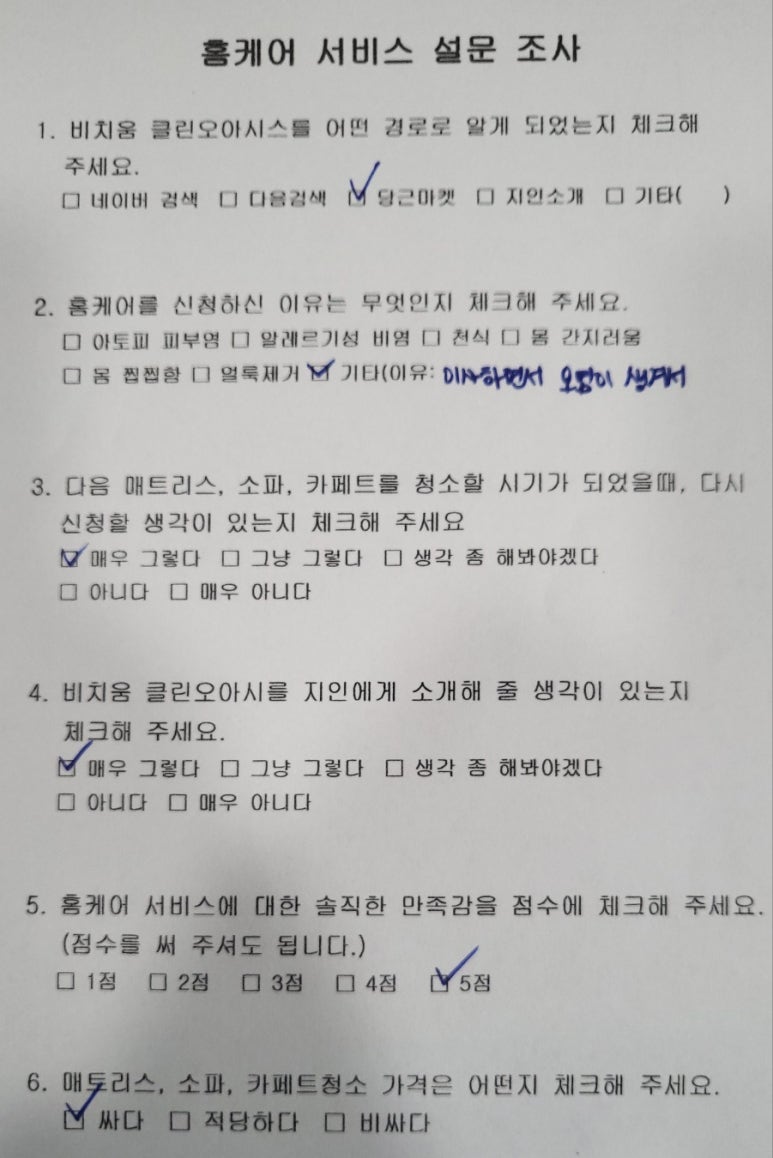 홈케어 서비스 설문 조사
1. 비치움 클린오아시스를 어떤 경로로 알게 되었는지 체크해
주세요.
□ 네이버 검색 □ 다음검색 ☑ 당근마켓 □ 지인소개 □ 기타( )
2. 홈케어를 신청하신 이유는 무엇인지 체크해 주세요.
□ 아토피 피부염 □ 알레르기성 비염 □ 천식 □ 몸 간지러움
□ 몸 찝찝함 □ 얼룩제거 ☑ 기타(이유: 이사하면서 오염이 생겨서
3. 다음 매트리스, 소파, 카페트를 청소할 시기가 되었을때, 다시
신청할 생각이 있는지 체크해 주세요
☑ 매우 그렇다 □ 그냥 그렇다 □ 생각 좀 해봐야겠다
□ 아니다 □ 매우 아니다
4. 비치움 클린오아시를 지인에게 소개해 줄 생각이 있는지
체크해 주세요.
☑ 매우 그렇다 □ 그냥 그렇다 □ 생각 좀 해봐야겠다
□ 아니다 □ 매우 아니다
5. 홈케어 서비스에 대한 솔직한 만족감을 점수에 체크해 주세요.
(점수를 써 주셔도 됩니다.)
□ 1점 □ 2점 □ 3점 □ 4점 ☑ 5점
6. 매트리스, 소파, 카페트청소 가격은 어떤지 체크해 주세요.
☑ 싸다 □ 적당하다 □ 비싸다